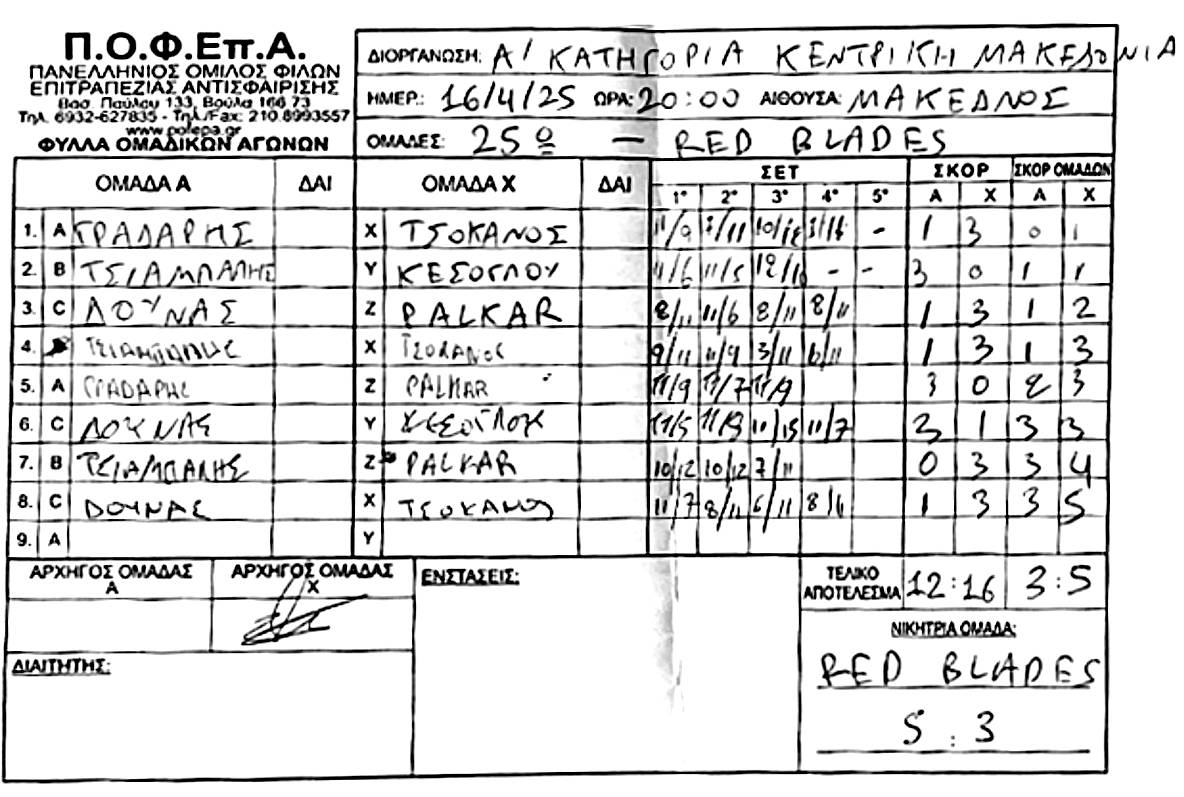 Π.Ο.Φ.Επ.Α.
ΠΑΝΕΛΛΗΝΙΟΣ ΟΜΙΛΟΣ ΦΙΛΩΝ
ΕΠΙΤΡΑΠΕΖΙΑΣ ΑΝΤΙΣΦΑΙΡΙΣΗΣ
Βασ. Παύλου 133, Βούλα 166 73
Τηλ. 6932-627835 - Τηλ./Fax: 210 8993557
www.pofepa.gr
ΦΥΛΛΑ ΟΜΑΔΙΚΩΝ ΑΓΩΝΩΝ
ΔΙΟΡΓΑΝΩΣΗ: Α' ΚΑΤΗΓΟΡΙΑ ΚΕΝΤΡΙΚΗ ΜΑΚΕΔΟΝΙΑ
ΗΜΕΡ.: 16/4/25 ΩΡΑ: 20:00 ΑΙΘΟΥΣΑ: ΜΑΚΕΔΝΟΣ
ΟΜΑΔΕΣ: 25ο - RED BLADES
ΟΜΑΔΑ Α ΔΑΙ ΟΜΑΔΑ Χ ΔΑΙ ΣΕΤ ΣΚΟΡ ΣΚΟΡ ΟΜΑΔΩΝ
1° 2° 3° 4° 5° Α Χ Α Χ
1. A ΓΡΑΔΑΡΗΣ X ΤΣΟΚΑΝΟΣ 11/9 - 1 3 0 1
2. B ΤΣΙΑΜΠΑΛΗΣ Y ΚΕΣΟΓΛΟΥ 11/6 11/5 12/10 - - 3 0 1 1
3. C ΛΟΥΝΑΣ Z PALKAR 8/11 11/6 8/11 8/11 1 3 1 2
4. ΤΣΙΑΜΠΑΛΗΣ X ΤΣΟΚΑΝΟΣ 9/11 11/9 3/11 6/11 1 3 1 3
5. A ΓΡΑΔΑΡΗΣ Z PALKAR 11/9 11/7 11/9 3 0 2 3
6. C ΛΟΥΝΑΣ Y ΚΕΣΟΓΛΟΥ 11/5 11/7 3 1 3 3
7. B ΤΣΙΑΜΠΑΛΗΣ Z PALKAR 10/12 10/12 7/11 0 3 3 4
8. C ΛΟΥΝΑΣ X ΤΣΟΚΑΝΟΣ 11/7 8/11 6/11 1 3 3 5
9. A Y
ΑΡΧΗΓΟΣ ΟΜΑΔΑΣ Α ΑΡΧΗΓΟΣ ΟΜΑΔΑΣ Χ ΕΝΣΤΑΣΕΙΣ: ΤΕΛΙΚΟ ΑΠΟΤΕΛΕΣΜΑ 12:16 3:5
ΝΙΚΗΤΡΙΑ ΟΜΑΔΑ:
ΔΙΑΙΤΗΤΗΣ:
RED BLADES
5:3